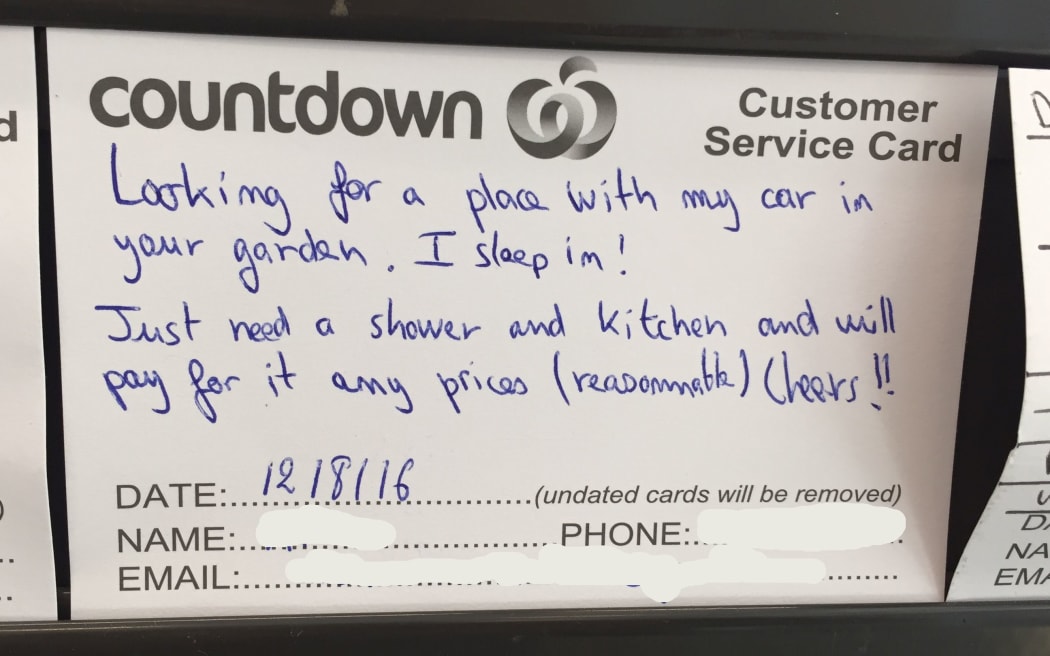 countdown
Customer
Service Card
Looking for a place with my car in
your garden. I sleep in!
Just need a shower and kitchen and will
pay for it any prices (reasonnable) Cheers!!
DATE: 12/8/16 (undated cards will be removed)
NAME: PHONE:
EMAIL:
d
NA
EMA